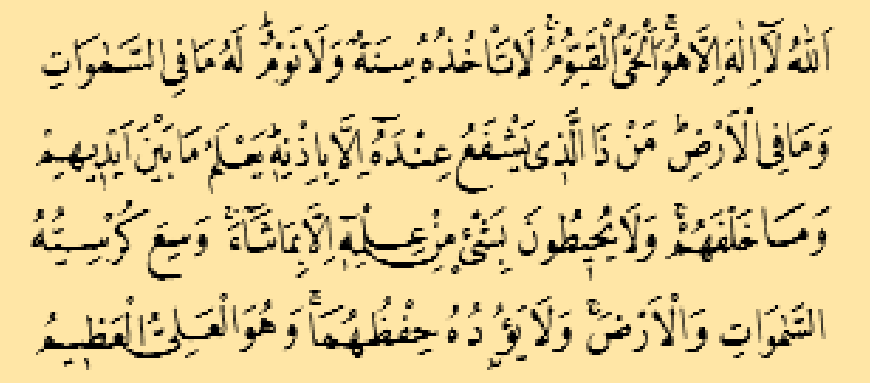 اَللهُ لَآ اِلٰهَ اِلَّا هُوَۚ اَلْحَىُّ الْقَيُّوْمُۚ لَا تَاْخُذُهٗ سِنَةٌ وَّلَا نَوْمٌؕ لَهٗ مَا فِى السَّمٰوَاتِ
وَمَا فِى الْاَرْضِؕ مَنْ ذَا الَّذِى يَشْفَعُ عِنْدَهٗٓ اِلَّا بِاِذْنِهٖؕ يَعْلَمُ مَا بَيْنَ اَيْدِيهِمْ
وَمَا خَلْفَهُمْۚ وَلَا يُحِيطُونَ بِشَىْءٍ مِنْ عِلْمِهٖٓ اِلَّا بِمَا شَآءَۚ وَسِعَ كُرْسِيُّهُ
السَّمٰوَاتِ وَالْاَرْضَۚ وَلَا يَؤُدُهٗ حِفْظُهُمَاۚ وَهُوَ الْعَلِىُّ الْعَظِيمُ